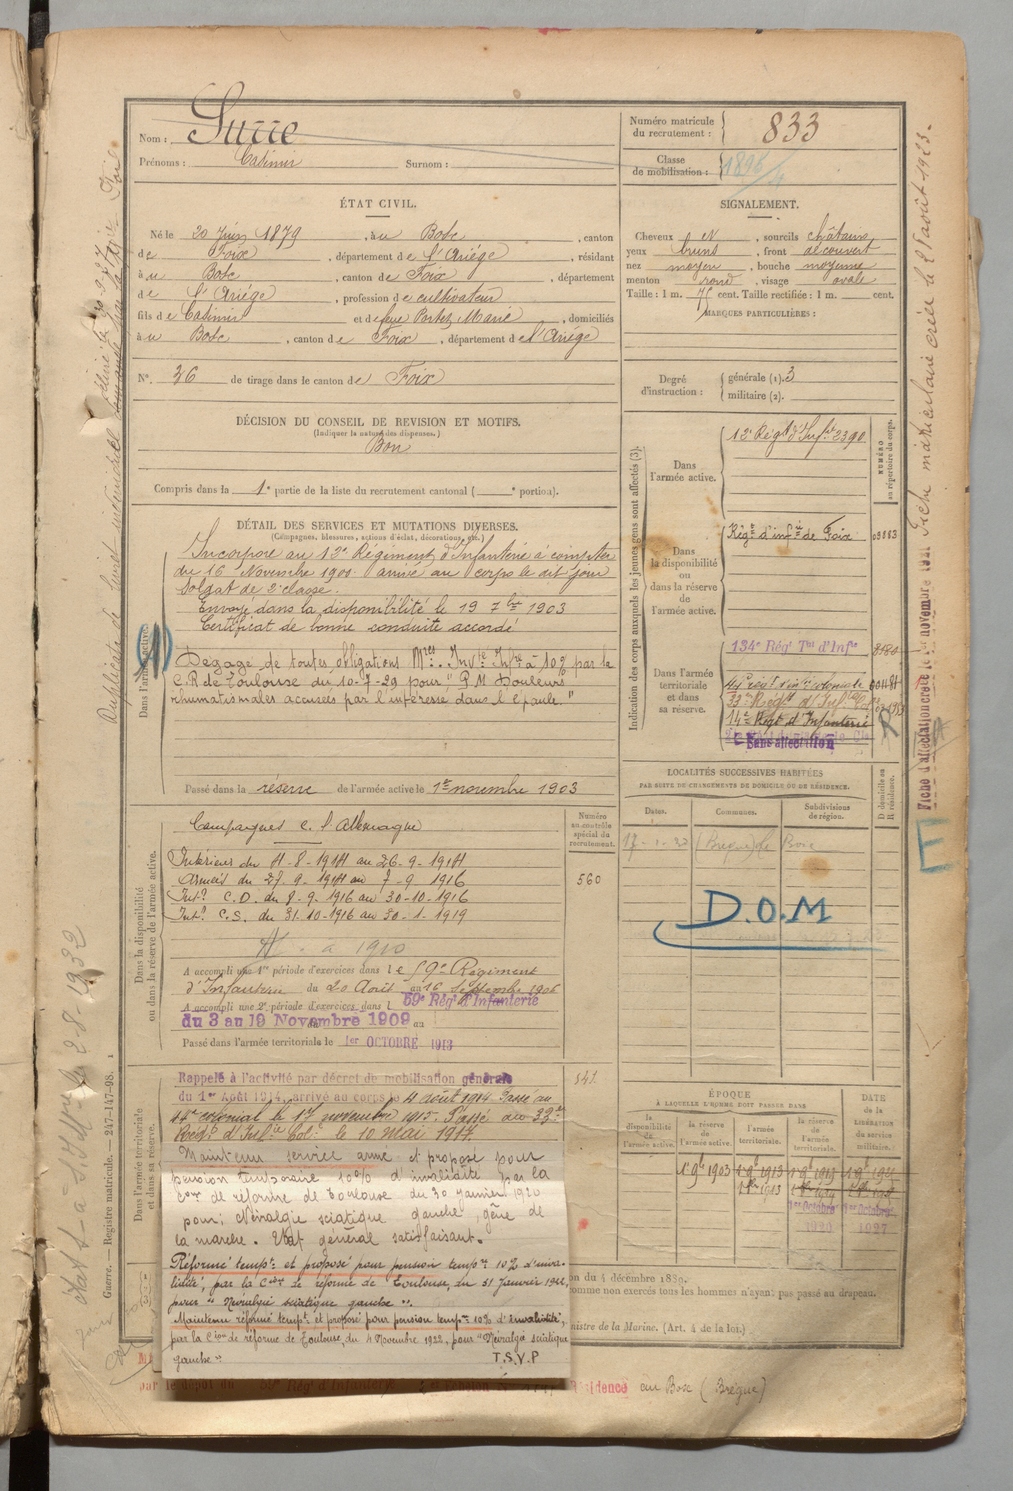 Nom : Surre
Prénoms : Casimir Surnom :
Numéro matricule du recrutement : 833
Classe de mobilisation : 1896/4
ÉTAT CIVIL.
Né le 20 Juin 1879, à u Bosc, canton
de Foix, département de l'Ariége, résidant
à u Bosc, canton de Foix, département
de l'Ariége, profession de cultivateur
fils de Casimir et de feue Portet Marie, domiciliés
à u Bosc, canton de Foix, département de l'Ariége
N° 36 de tirage dans le canton de Foix
SIGNALEMENT.
Cheveux et, sourcils châtains
yeux bruns, front découvert
nez moyen, bouche moyenne
menton rond, visage ovale
Taille : 1 m. cent. Taille rectifiée : 1 m. cent.
MARQUES PARTICULIÈRES :
Degré d'instruction : générale (1). 3
militaire (2).
DÉCISION DU CONSEIL DE REVISION ET MOTIFS.
(Indiquer la nature des dispenses.)
Bon
Compris dans la 1e partie de la liste du recrutement cantonal ( e portion).
DÉTAIL DES SERVICES ET MUTATIONS DIVERSES.
(Campagnes, blessures, actions d'éclat, décorations, etc.)
Dans l'armée active.
Incorporé au 12e Régiment d'Infanterie à compter
du 16 Novembre 1900 arrivé au corps le dit jour
Soldat de 2e classe.
Envoyé dans la disponibilité le 19 7bre 1903
Certificat de bonne conduite accordé
Dégagé de toutes obligations Mres. Invté Infre à 10% par la
C.R de Toulouse du 10-7-29 pour "P.M Douleurs
rhumatismales accusées par l'intéressé dans l'épaule"
Passé dans la réserve de l'armée active le 1er novembre 1903
Indication des corps auxquels les jeunes gens sont affectés (3).
NUMÉRO au répertoire du corps.
Dans l'armée active.
12e Régt d'Infie 2390
Dans la disponibilité ou dans la réserve de l'armée active.
Régt d'infie de Foix 03883
Dans l'armée territoriale et dans sa réserve.
134e Régt Tal d'Infie
44e régt d'infie coloniale
33e Régt d'Infie Cole
14e Régt d'Infanterie
Sans affectation
LOCALITÉS SUCCESSIVES HABITÉES
PAR SUITE DE CHANGEMENTS DE DOMICILE OU DE RÉSIDENCE.
Dates. Communes. Subdivisions de région. D domicile ou R résidence.
D.O.M
E
Dans la disponibilité ou dans la réserve de l'armée active.
Numéro au contrôle spécial du recrutement.
560
Campagnes c. l'Allemagne
Intérieur du 4-8-1914 au 26-9-1914
Armées du 27-9-1914 au 7-9 1916
Intr C.D. du 8-9-1916 au 30-10-1916
Intr C.S. du 31.10-1916 au 30-1-1919
A accompli une 1re période d'exercices dans le 59e Régiment
d'Infanterie du 20 Août au 16 Septembre 1906
A accompli une 2e période d'exercices dans l 59e Régt d'Infanterie
du 3 au 19 Novembre 1909 au
Passé dans l'armée territoriale le 1er OCTOBRE 1913
Dans l'armée territoriale et dans sa réserve.
Rappelé à l'activité par décret de mobilisation générale
du 1er Août 1914, arrivé au corps le 4 août 1914. Passé au
44e colonial le 17 novembre 1915. Passé au 33e
Régt d'Infie Cole le 10 Mai 1917.
Maintenu service armé et proposé pour
pension temporaire 10% d'invalidité par la
Con de réforme de Toulouse du 30 Janvier 1920
pour ; Névralgie sciatique gauche, gêne de
la marche. Etat général satisfaisant.
Réformé tempt et proposé pour pension tempre 10% d'inva-
lidité, par la Con de réforme de Toulouse, du 31 Janvier 1922,
pour "Névralgie sciatique gauche".
Maintenu réformé tempt et proposé pour pension tempre 10% d'invalidité,
par la Cion de réforme de Toulouse, du 4 Novembre 1922, pour "Névralgie sciatique
gauche".
T.S.V.P
ÉPOQUE
À LAQUELLE L'HOMME DOIT PASSER DANS
la disponibilité de l'armée active. la réserve de l'armée active. l'armée territoriale. la réserve de l'armée territoriale.
DATE de la LIBÉRATION du service militaire.
1er 9b 1903
1er Octobre 1920
1er Octobre 1927
on du 4 décembre 1889.
omme non exercés tous les hommes n'ayant pas passé au drapeau.
nistre de la Marine. (Art. 4 de la loi.)
Résidence au Bosc (Brégué)
Guerre. — Registre matricule. — 247-147-98.
Fiche matriculaire créée le 2 août 1923.
Fiche d'affectation créée le 1er novembre 1921